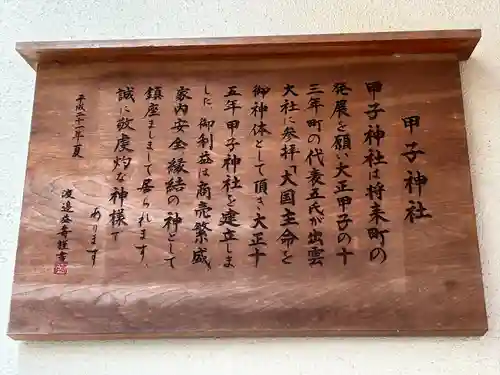 甲子神社
甲子神社は将来町の
発展を願い大正甲子の十
三年町の代表五氏が出雲
大社に参拝「大国主命」を
御神体として頂き大正十
五年甲子神社を建立しま
した 御利益は商売繁盛、
家内安全縁結の神として
鎮座ましまして居られます、
誠に敬虔灼な神様で
あります
平成二十一年夏
渡辺益寿謹書